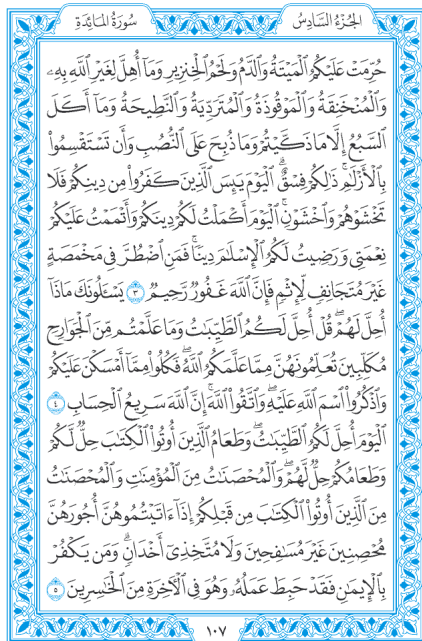 الجُزْءُ السَّادِسُ
سُورَةُ المَائِدَةِ
حُرِّمَتْ عَلَيْكُمُ ٱلْمَيْتَةُ وَٱلدَّمُ وَلَحْمُ ٱلْخِنزِيرِ وَمَآ أُهِلَّ لِغَيْرِ ٱللَّهِ بِهِۦ
وَٱلْمُنْخَنِقَةُ وَٱلْمَوْقُوذَةُ وَٱلْمُتَرَدِّيَةُ وَٱلنَّطِيحَةُ وَمَآ أَكَلَ
ٱلسَّبُعُ إِلَّا مَا ذَكَّيْتُمْ وَمَا ذُبِحَ عَلَى ٱلنُّصُبِ وَأَن تَسْتَقْسِمُوا۟
بِٱلْأَزْلَٰمِ ۚ ذَٰلِكُمْ فِسْقٌ ۗ ٱلْيَوْمَ يَئِسَ ٱلَّذِينَ كَفَرُوا۟ مِن دِينِكُمْ فَلَا
تَخْشَوْهُمْ وَٱخْشَوْنِ ۚ ٱلْيَوْمَ أَكْمَلْتُ لَكُمْ دِينَكُمْ وَأَتْمَمْتُ عَلَيْكُمْ
نِعْمَتِى وَرَضِيتُ لَكُمُ ٱلْإِسْلَٰمَ دِينًا ۚ فَمَنِ ٱضْطُرَّ فِى مَخْمَصَةٍ
غَيْرَ مُتَجَانِفٍ لِّإِثْمٍ ۙ فَإِنَّ ٱللَّهَ غَفُورٌ رَّحِيمٌ ٣ يَسْـَٔلُونَكَ مَاذَآ
أُحِلَّ لَهُمْ ۖ قُلْ أُحِلَّ لَكُمُ ٱلطَّيِّبَٰتُ ۙ وَمَا عَلَّمْتُم مِّنَ ٱلْجَوَارِحِ
مُكَلِّبِينَ تُعَلِّمُونَهُنَّ مِمَّا عَلَّمَكُمُ ٱللَّهُ ۖ فَكُلُوا۟ مِمَّآ أَمْسَكْنَ عَلَيْكُمْ
وَٱذْكُرُوا۟ ٱسْمَ ٱللَّهِ عَلَيْهِ ۖ وَٱتَّقُوا۟ ٱللَّهَ ۚ إِنَّ ٱللَّهَ سَرِيعُ ٱلْحِسَابِ ٤
ٱلْيَوْمَ أُحِلَّ لَكُمُ ٱلطَّيِّبَٰتُ ۖ وَطَعَامُ ٱلَّذِينَ أُوتُوا۟ ٱلْكِتَٰبَ حِلٌّ لَّكُمْ
وَطَعَامُكُمْ حِلٌّ لَّهُمْ ۖ وَٱلْمُحْصَنَٰتُ مِنَ ٱلْمُؤْمِنَٰتِ وَٱلْمُحْصَنَٰتُ
مِنَ ٱلَّذِينَ أُوتُوا۟ ٱلْكِتَٰبَ مِن قَبْلِكُمْ إِذَآ ءَاتَيْتُمُوهُنَّ أُجُورَهُنَّ
مُحْصِنِينَ غَيْرَ مُسَٰفِحِينَ وَلَا مُتَّخِذِىٓ أَخْدَانٍ ۗ وَمَن يَكْفُرْ
بِٱلْإِيمَٰنِ فَقَدْ حَبِطَ عَمَلُهُۥ وَهُوَ فِى ٱلْـَٔاخِرَةِ مِنَ ٱلْخَٰسِرِينَ ٥
١٠٧